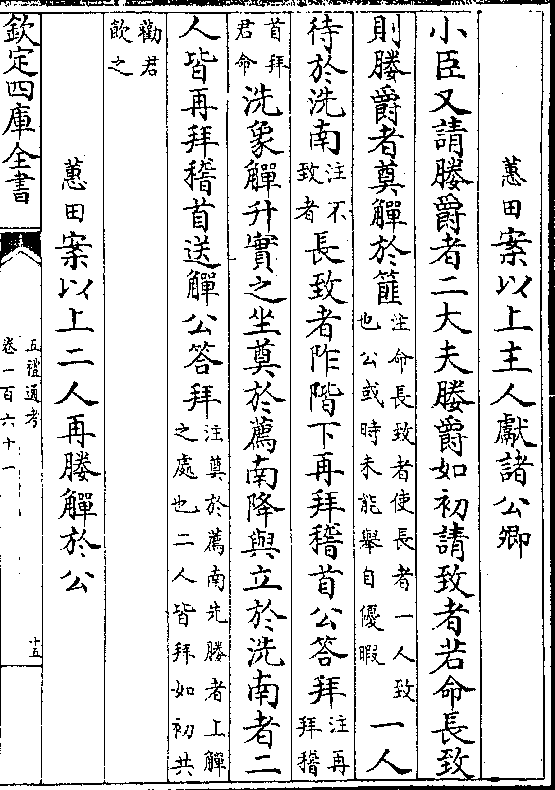 蕙田案以上主人獻諸公卿
小臣又請媵爵者二大夫媵爵如初請致者若命長致
則媵爵者奠觶於篚注命長致者使長者一人致也公或時未能舉自優暇一人
待於洗南注不致者長致者阼階下再拜稽首公答拜注再拜稽
首拜君命洗象觶升實之坐奠於薦南降與立於洗南者二
人皆再拜稽首送觶公答拜注奠於薦南先媵者上觶之處也二人皆拜如初共
勸君飲之
蕙田案以上二人再媵觶於公
欽定四庫全書
五禮通考
卷一百六十一
十五